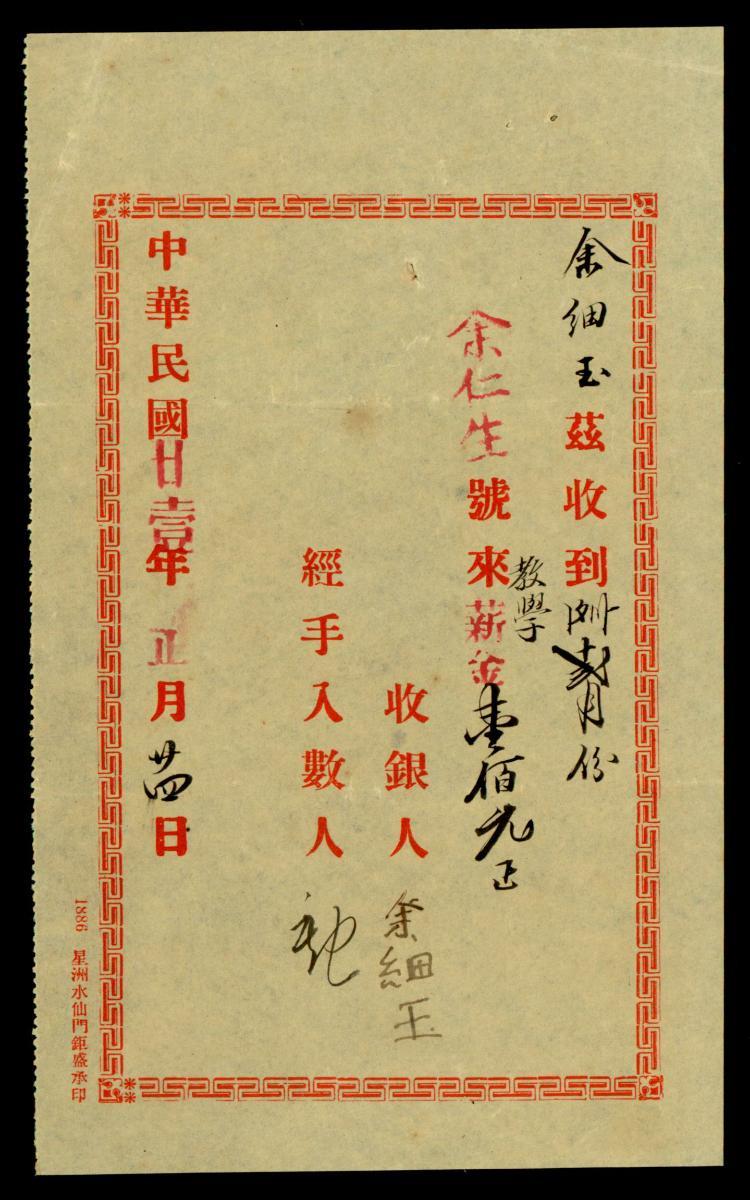 余細玉茲收到月份
教學
余仁生號來薪金壹佰元正
收銀人余細玉
經手入數人
中華民國廿壹年正月廿四日
1886 星洲水仙門鉅盛承印